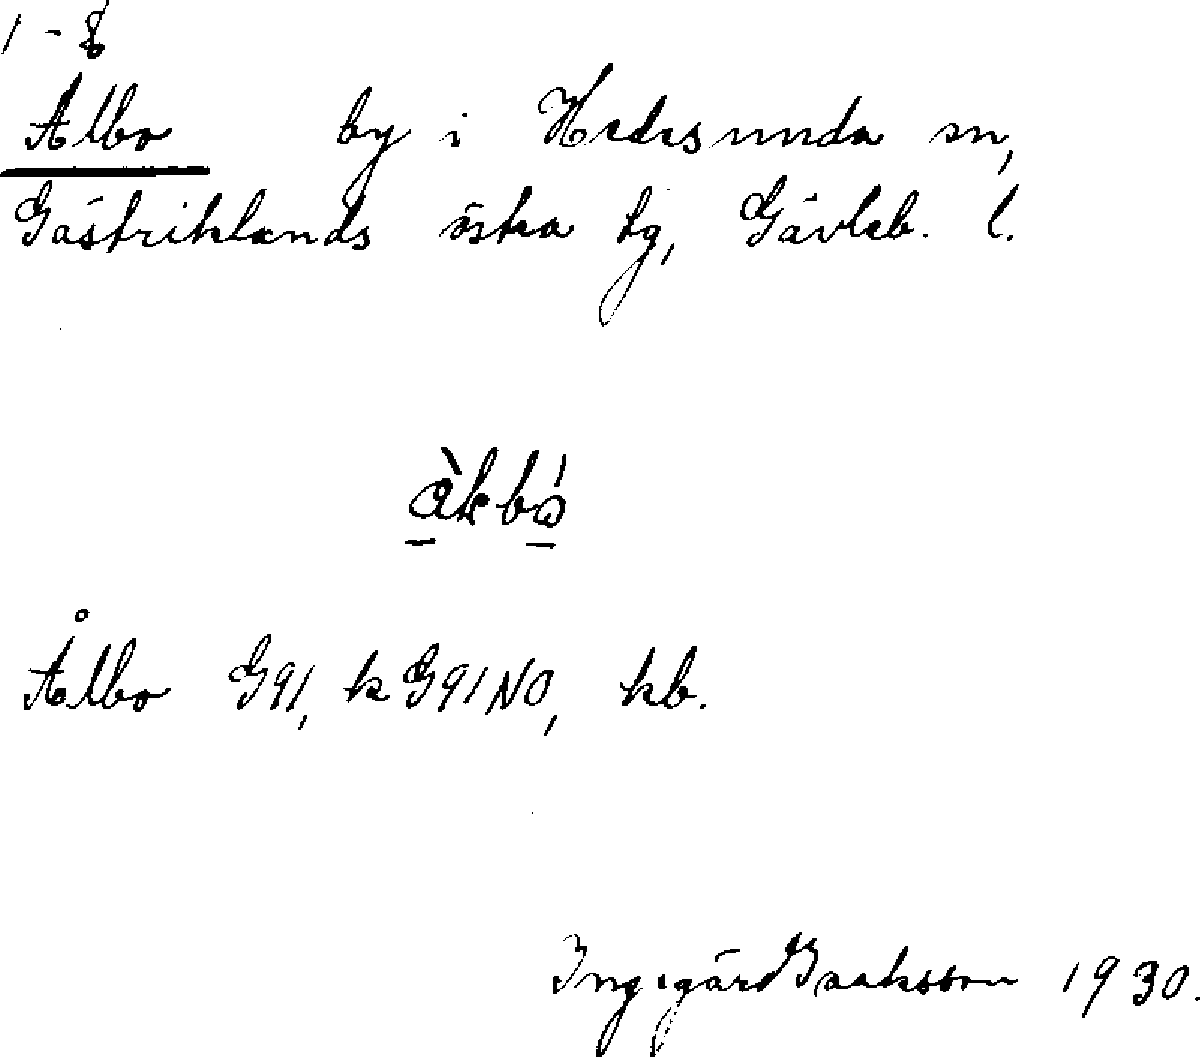 1-8
Ålbo by i Hedesunda sn,
Gästriklands östra tg, Gävleb. l.
Ålbo G91, k G91NO, kb.
Ingegärd Isaksson 1930.